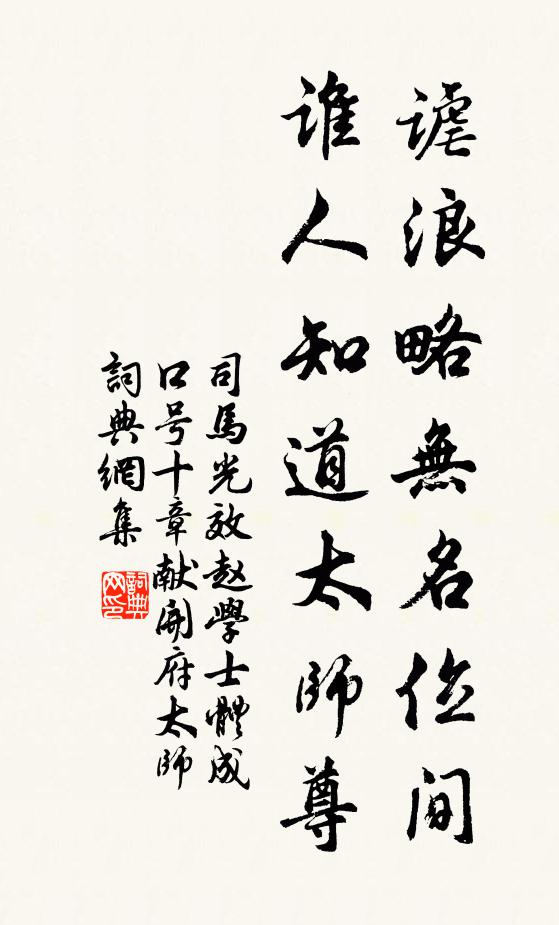 謔浪略無名位间
谁人知道太師尊
司馬光效赵學士體成
口号十章献開府太師
詞典網集
詞典网印